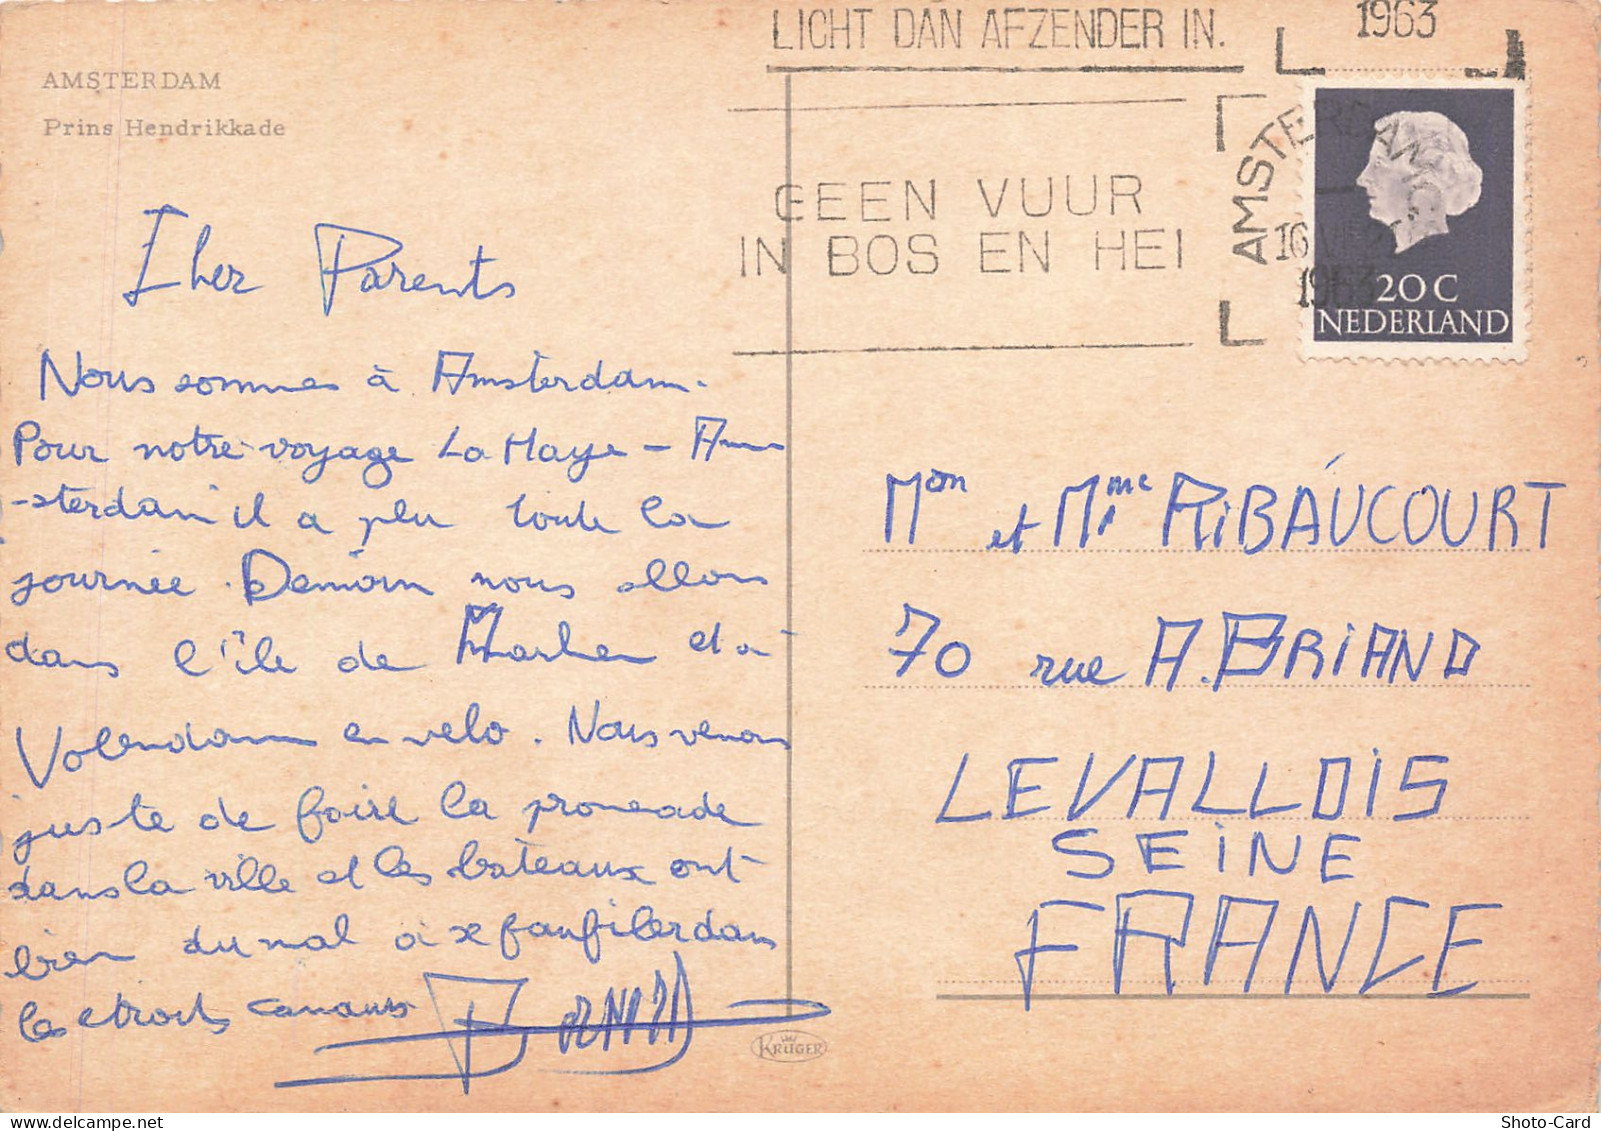 AMSTERDAM
Prins Hendrikkade
LICHT DAN AFZENDER IN.
1963
GEEN VUUR
IN BOS EN HEI
AMSTERDAM
16 VII
1963
20 C
NEDERLAND
Cher Parents
Nous sommes à Amsterdam.
Pour notre voyage La Haye – Am
-sterdam il a plu toute la
journée. Demain nous allons
dans l'île de Marken et à
Volendam en velo. Nous venons
juste de faire la promenade
dans la ville et les bateaux ont
bien du mal à se faufiler dans
les etroits canaux BERNARD
Mon et Mme RIBAUCOURT
70 rue A. BRIAND
LEVALLOIS
SEINE
FRANCE
KRÜGER
Shoto-Card